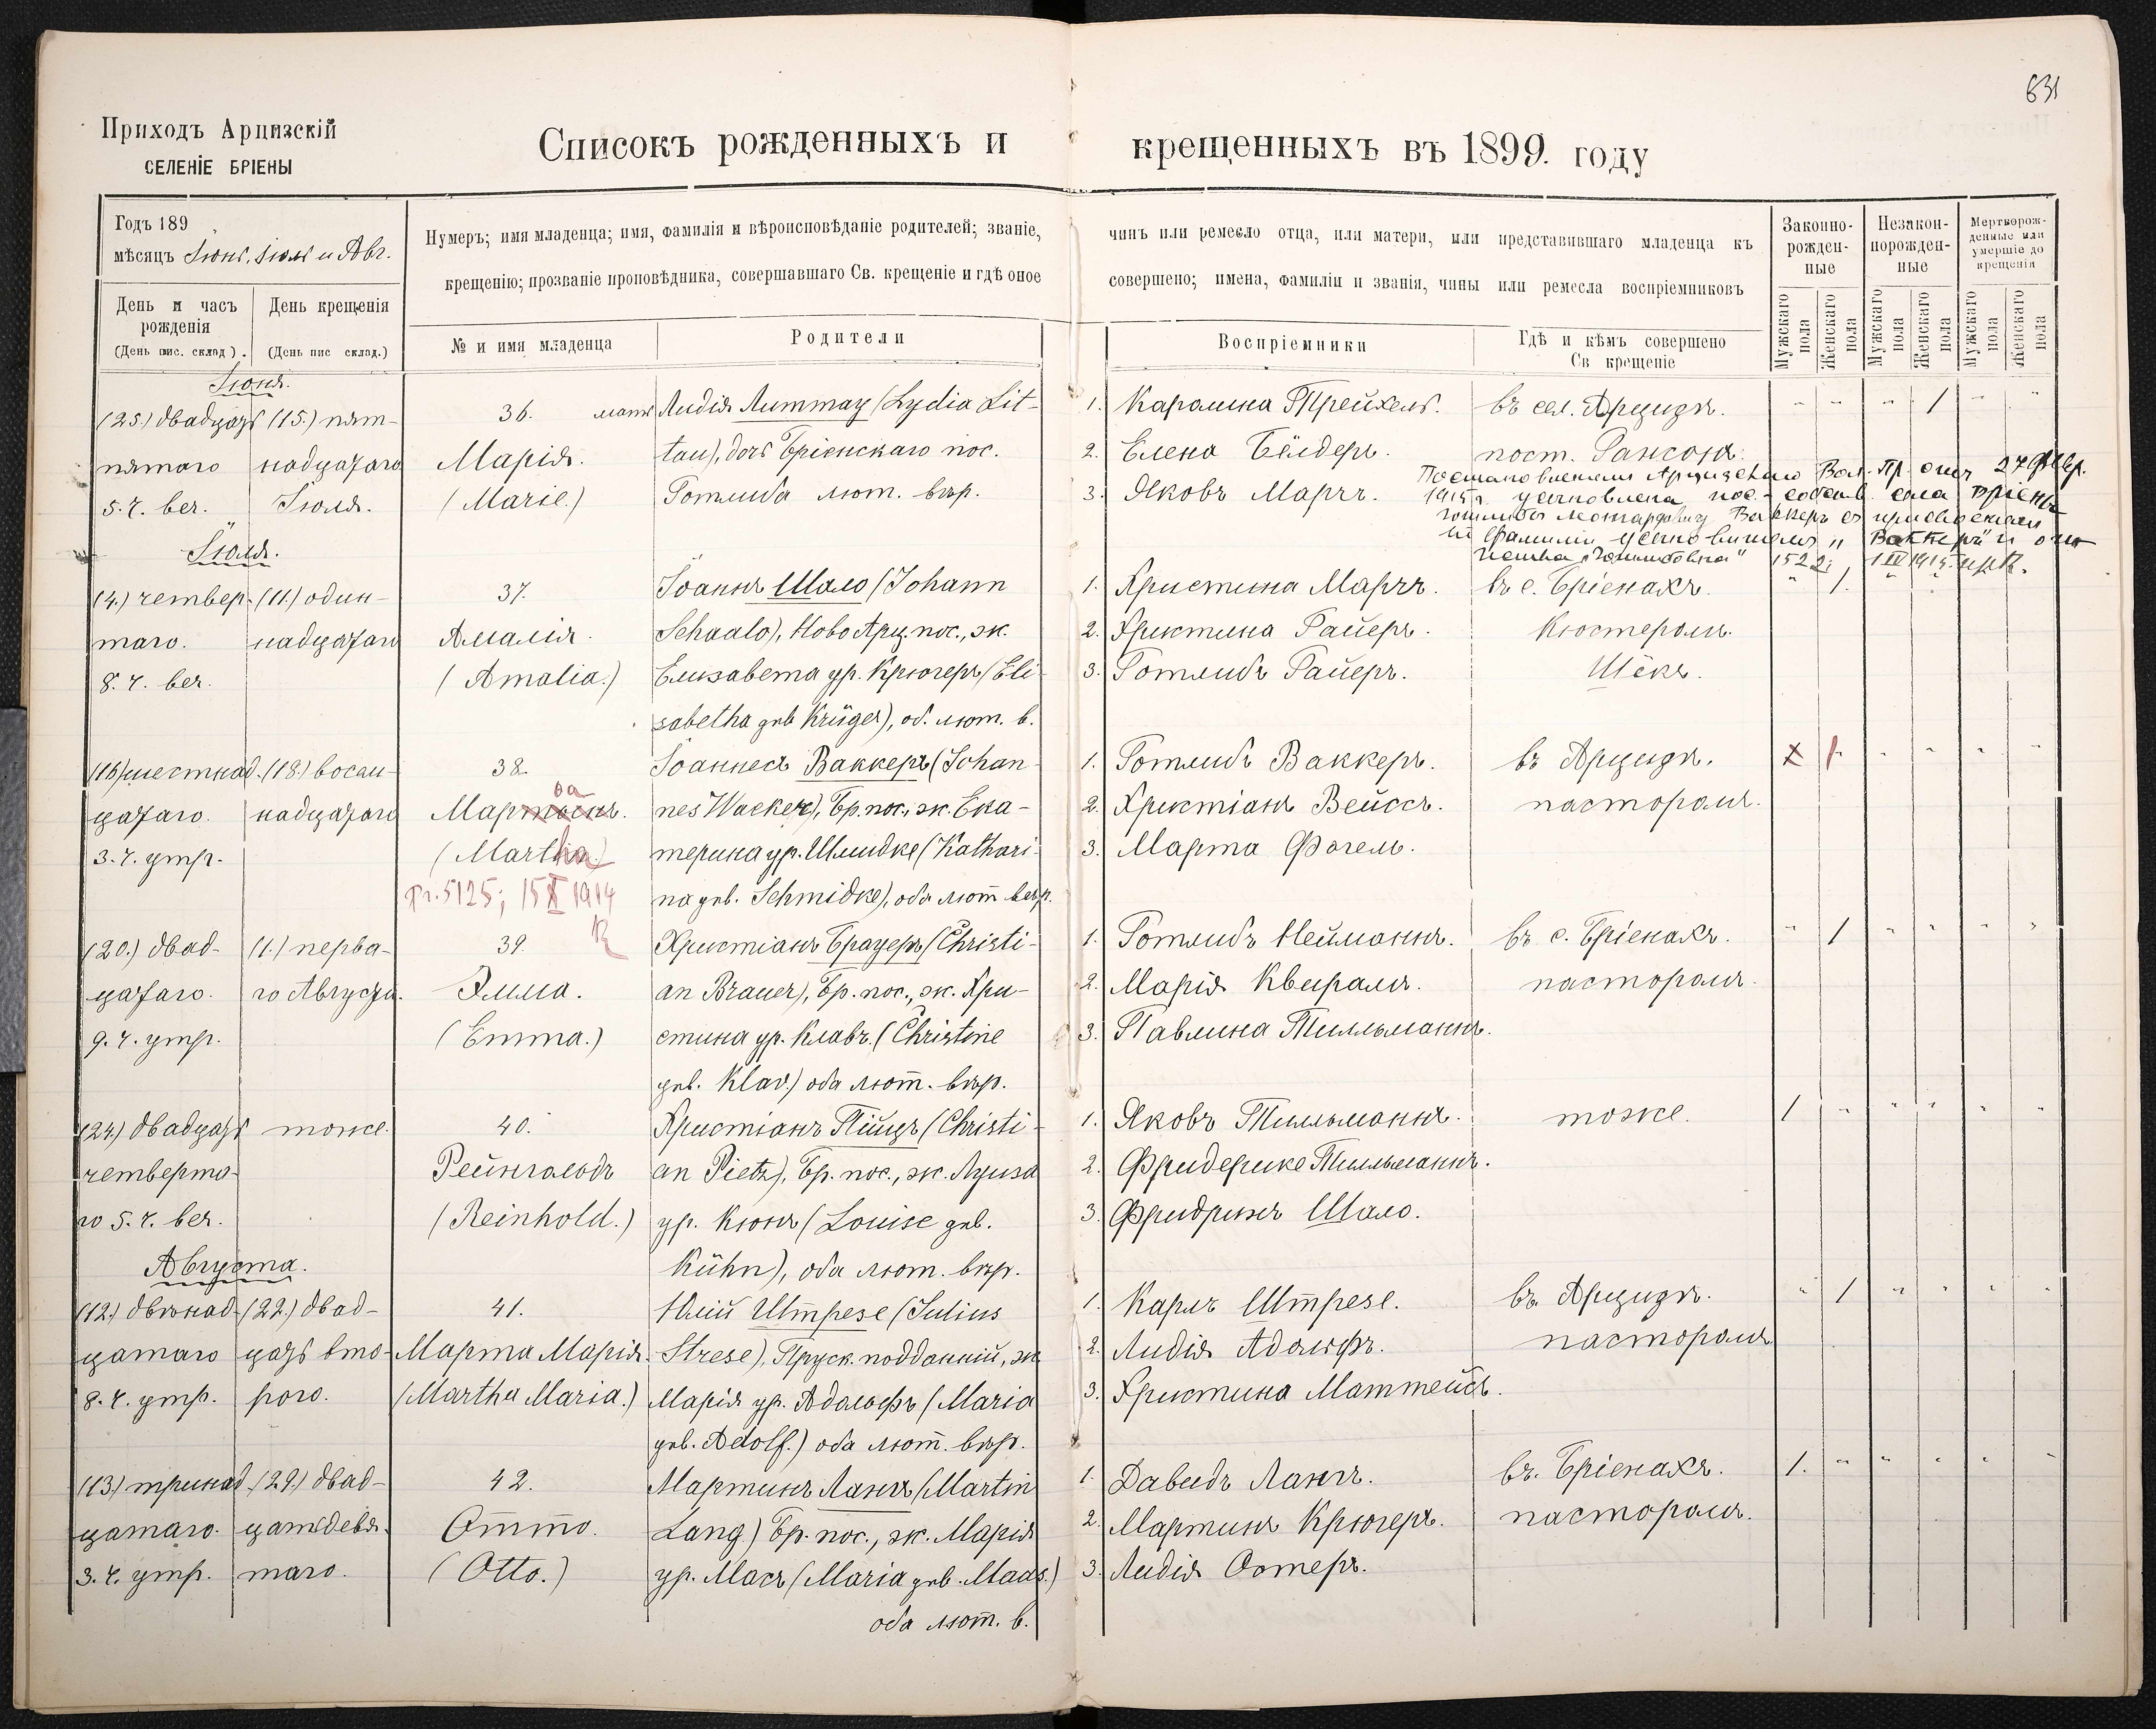 631
Приходъ Арцизскій
СЕЛЕНІЕ БРІЕНЫ
Списокъ рожденныхъ и крещенныхъ въ 1899. году
Годъ 189
мѣсяцъ Іюнь, Іюль и Авг.
День и часъ рожденія
(День пис. склад.)
День крещенія
(День пис склад.)
Нумеръ; имя младенца; имя, фамилія и вѣроисповѣданіе родителей; званіе, чинъ или ремесло отца, или матери, или представившаго младенца къ
крещенію; прозваніе проповѣдника, совершавшаго Св. крещеніе и гдѣ оное совершено; имена, фамиліи и званія, чины или ремесла воспріемниковъ
№ и имя младенца
Родители
Воспріемники
Гдѣ и кѣмъ совершено
Св крещеніе
Законно-
рожден-
ные
Незакон-
норожден-
ные
Мертворож-
денные или
умершіе до
крещенія
Мужскаго пола
Женскаго пола
Мужскаго пола
Женскаго пола
Мужскаго пола
Женскаго пола
Іюня.
(25.) двадцать
пятаго
5. ч. веч.
(15.) пят-
надцатаго
Іюля.
36.
Марія.
(Marie.)
мать Лидія Литтау (Lydia Lit-
tau), дочь Бріенскаго пос.
Готлиба лют. вѣр.
1. Каролина Трейхель.
2. Елена Бёлдеръ.
3. Яковъ Марчъ.
въ сел. Арцизѣ.
паст. Гансонъ.
Постановленіемъ Арцизскаго Вол. Пр. отъ 27 Февр.
1915 г. усыновлена пос.-собств. села Бріены
Готлибъ Леонгардовичъ Ваккеръ съ присвоеніемъ
ей фамиліи усыновителя „Ваккеръ" и отч
„Готлибовна" 1522;
1
Іюля.
(4.) четвер-
таго.
8. ч. веч.
(11.) один-
надцатаго
37.
Амалія.
(Amalia.)
Іоаннъ Шало (Johann
Schaalo), Ново Арц. пос., ж.
Елизавета ур. Крюгеръ (Eli-
sabetha gеb Krüger), об. лют. в.
1. Христина Марчъ.
2. Христина Гайеръ.
3. Готлибъ Гайеръ.
въ с. Бріенахъ.
Кюстеромъ.
Шёкъ.
1.
(16) шестнад-
цатаго.
3. ч. утр.
(18.) восем-
надцатаго
38.
(Martha)
5125; 15 X 1914
Іоаннесъ Ваккеръ (Johan-
nes Wacker), Бр. пос., ж. Ека-
терина ур. Шмидке (Kathari-
na geb. Schmidke), оба лют вѣр.
1. Готлибъ Ваккеръ.
2. Христіанъ Вейссъ.
3. Марта Фогель.
въ Арцизѣ.
пасторомъ.
(20.) двад-
цатаго.
9. ч. утр.
(1.) перва-
го Августа.
39.
Эмма.
(Emma.)
Христіанъ Брауеръ (Christi-
an Brauer), Бр. пос., ж. Хри-
стина ур. Клавъ. (Christine
geb. Klav.) оба лют. вѣр.
1. Готлибъ Нейманнъ.
2. Марія Квирамъ.
3. Павлина Тилльманнъ.
въ с. Бріенахъ.
пасторомъ.
1
(24.) двадцать
четверта-
го 5. ч. веч.
тоже.
40.
Рейнголдъ
(Reinhold.)
Христіанъ Пицъ (Christi-
an Pietz), Бр. пос., ж. Луиза
ур. Кюнъ (Louise geb.
Kühn), оба лют. вѣр.
1. Яковъ Тилльманнъ.
2. Фридерике Тилльманнъ.
3. Фридрихъ Шало.
тоже.
1
Августа.
(12.) двѣнад-
цатаго
8. ч. утр.
(22.) двад-
цать вто-
рого.
41.
Марта Марія.
(Martha Maria.)
Юлій Штрезе (Julius
Strese), Прус. подданній, ж
Марія ур. Адольфъ (Maria
geb. Adolf.) оба лют. вѣр.
1. Карлъ Штрезе.
2. Лидія Адольфъ.
3. Христина Маттейсъ.
въ Арцизѣ.
пасторомъ
1
(13.) тринад-
цатаго.
3. ч. утр.
(29.) двад-
цатьдевя-
таго.
42.
Отто.
(Otto.)
Мартинъ Лангъ (Martin
Lang.) Бр. пос., ж. Марія
ур. Масъ (Maria geb. Maas.)
оба лют. в.
1. Давидъ Лангъ.
2. Мартинъ Крюгеръ.
3. Лидія Остеръ.
въ. Бріенахъ.
пасторомъ.
1.